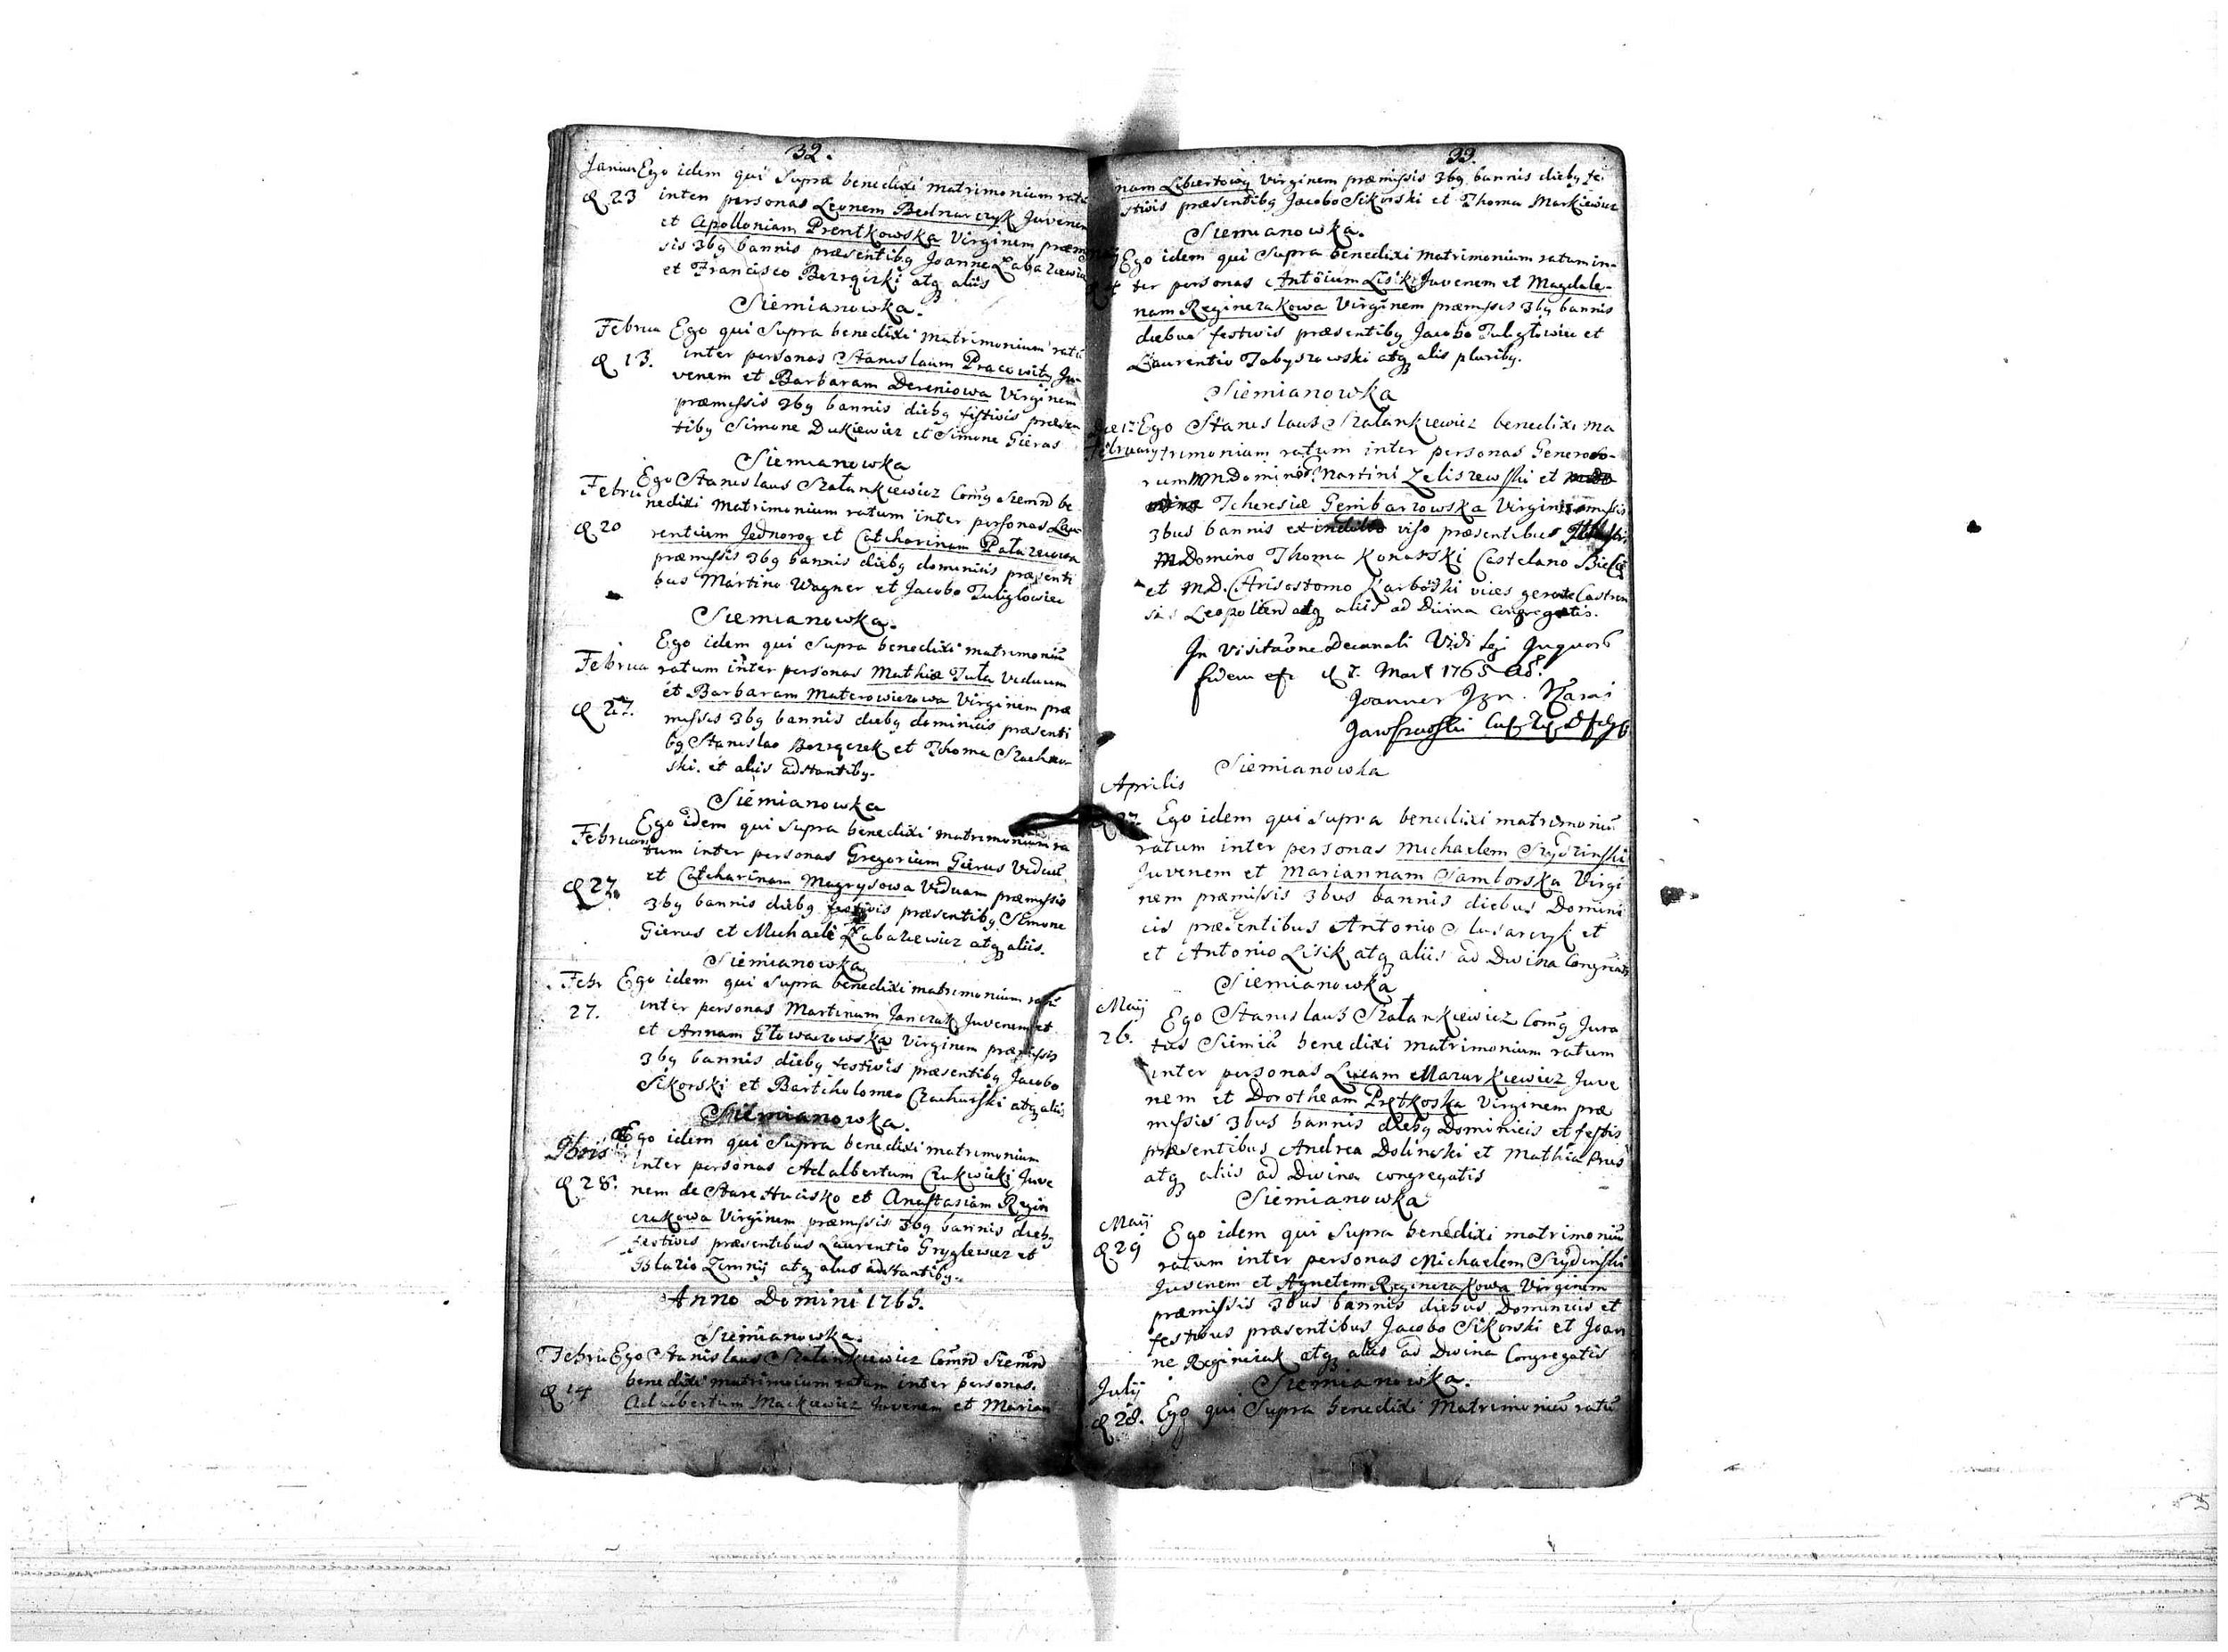 32.
Januar Ego idem qui Supra benedixi matrimonium ratu
d 23 inter personas Leonem Bednarczyk Juvenem
et Apolloniam Prentkowska Virginem præmis
sis 3bg bannis præsentibg Joanne Łabaziewicz
et Francisco atq aliis
Siemianowka.
Februa Ego qui Supra benedixi matrimonium ratū
d 13. inter personas Stanislaum Pracowity Ju-
venem et Barbaram Dereniowa Virginem
præmissis 3bg bannis diebg festivis præsen
tibg Simone Dukiewicz et Simone Gieras
Siemianowka
Ego Stanislaus Szałankiewicz Comg Siemn be
Febru nedixi Matrimonium ratum inter personas Lau
d 20 rentium Jednorog et Catcharinam Pałazewna
præmissis 3bg bannis diebg dominicis præsenti
bus Martino Wagner et Jacobo Tuliglowicz
Siemianowka.
Ego idem qui Supra benedixi matrimoniū
Februa ratum inter personas Mathiæ Tuła Viduum
et Barbaram Materowiczowa Virginem præ
d 27. missis 3bg bannis diebg dominicis præsenti
bg Stanislao et Thoma Szachnow
ski. et aliis adstantibg.
Siemianowka
Ego idem qui Supra benedixi matrimonium ra
Februar tum inter personas Gregorium Gierus Viduū
et Catcharinam Magrysowa Viduam præmissis
d 27. 3bg bannis diebg festivis præsentibg Simone
Gierus et Michaele Łabaziewicz atq aliis.
Siemianowka
Febr Ego idem qui Supra benedixi matrimonium ratū
27. inter personas Martinum Janczak Juvenem et
et Annam Głowaczowska Virginem præmissis
3bg bannis diebg festivis præsentibg Jacobo
Sikorski et Bartcholomeo Czacharski atq aliis
Siemianowka.
Ego idem qui Supra benedixi matrimonium
inter personas Adalbertum Czukwicki Juve
d 28. nem de Stare Hucisko et Anastasiam Regin
czakowa Virginem præmissis 3bg bannis diebg
festivis præsentibus Laurentio Gryglewicz et
Blazio Zimnij atq aliis adstantibg.
Anno Domini 1765.
Siemianowka.
Febru Ego Stanislaus Szałankiewicz Comn Siemn
benedixi matrimonium ratum inter personas.
d 14 Adalbertum Mackiewicz Juvenem et Marian
33.
nam Libertowy Virginem præmissis 3bg bannis diebg fe-
stivis præsentibg Jacobo Sikorski et Thoma Markiewicz
Siemianowka.
Ego idem qui Supra benedixi Matrimonium ratum in-
ter personas Antōium Lisik Juvenem et Magdale-
nam Reginczakowa Virginem præmissis 3bg bannis
diebus festivis præsentibg Jacobo Tuligłowicz et
Laurentio Tabyszowski atq aliis pluribg.
Siemianowka
Ego Stanislaus Szałankiewicz benedixi ma
February trimonium ratum inter personas Generoso-
rum MDominor Martini Zeliszewski et
Tcheresiæ Gembarzowska Virginis
3bus bannis viso præsentibus
MDomino Thoma Konarski Castelano
et MD. Chrisostomo Karboski vices Castren
sis Leopolien atq aliis ad Divina congregatis.
In Visitaōne Decanali Vidi
fidem 1765
Siemianowka
Aprilis
27. Ego idem qui supra benedixi matrimoniū
ratum inter personas Michaelem Szydzinski
Juvenem et Mariannam Samborska Virgi
nem præmissis 3bus bannis diebus Domini
cis præsentibus Antonio Slusarczyk et
et Antonio Lisik atq aliis ad Divina Congreat
Siemianowka
Maij Ego Stanislaus Szałankiewicz Comg Jura
26. tus Siemia benedixi matrimonium ratum
inter personas Lucam Mazurkiewicz Juve
nem et Dorotheam Prętkoska Virginem præ
missis 3bus bannis diebg Dominicis et festis
præsentibus Andrea Dolinski et Mathia Prus
atq aliis ad Divina congregatis
Siemianowka
Maij Ego idem qui Supra benedixi matrimoniū
d 29 ratum inter personas Michaelem Szydinski
Juvenem et Agnetem Reginczakowa Virginem
præmissis 3bus bannis diebus Dominicis et
festivus præsentibus Jacobo Sikorski et Joan
ne Reginczak atq aliis ad Divina Congregatis
Siemianowka.
Julij
d 28. Ego qui Supra benedixi Matrimoniū ratū